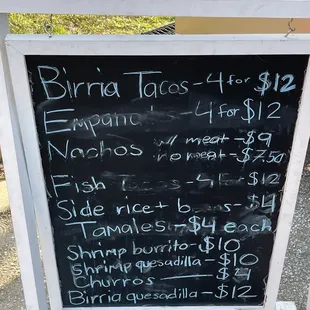 Birria Tacos - 4 for $12
Empanadas - 4 for $12
Nachos w/ meat - $9
no meat - $7.50
Fish Tacos - 4 for $12
Side rice + beans - $4
Tamales - $4 each
Shrimp burrito - $10
shrimp quesadilla - $10
Churros — $4
Birria quesadilla - $12